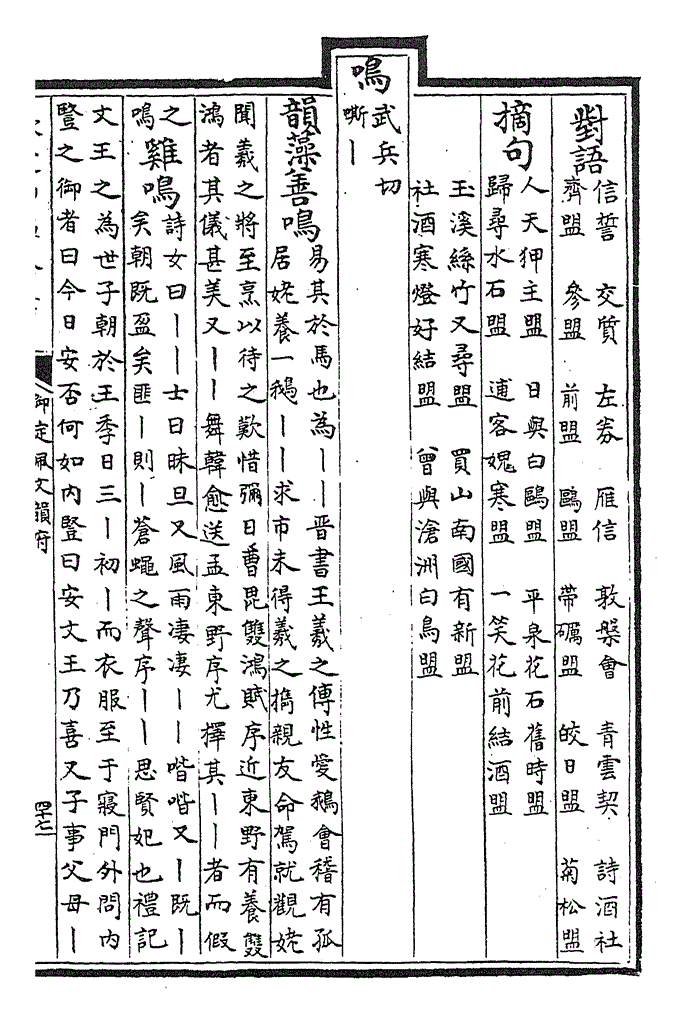 對語
信誓 交質 左券 雁信 敦槃會 青雲契 詩酒社
齊盟 參盟 前盟 鷗盟 帶礪盟 皎日盟 菊松盟
摘句
人天狎主盟 日與白鷗盟 平泉花石舊時盟
歸尋水石盟 逋客媿寒盟 一笑花前結酒盟
玉溪絲竹又尋盟 買山南國有新盟
社酒寒燈好結盟 曾與滄洲白鳥盟
鳴
武兵切
嘶丨
韻藻善鳴
易其於馬也為丨丨晉書王羲之傳性愛鵝會稽有孤
居姥養一鵝丨丨求市未得羲之攜親友命駕就觀姥
聞羲之將至烹以待之歎惜彌日曹毘雙鴻賦序近東野有養雙
鴻者其儀甚美又丨丨舞韓愈送孟東野序尤擇其丨丨者而假
之
鳴雞鳴
詩女曰丨丨士曰昧旦又風雨凄凄丨丨喈喈又丨既丨
矣朝既盈矣匪丨則丨蒼蠅之聲序丨丨思賢妃也禮記
文王之為世子朝於王季日三丨初丨而衣服至于寢門外問內
豎之御者曰今日安否何如內豎曰安文王乃喜又子事父母丨
御定佩文韻府
四十七